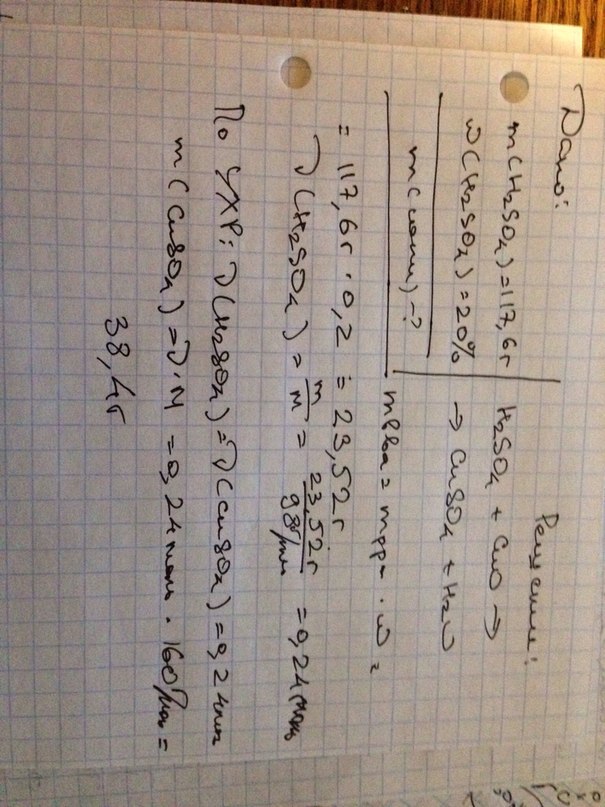 Дано:
m(H₂SO₄) = 117,6г
ω(H₂SO₄) = 20%
m(соли) - ?
Решение:
H₂SO₄ + CuO →
→ CuSO₄ + H₂O
mв-ва = mр-р · ω =
= 117,6г · 0,2 = 23,52г
ν(H₂SO₄) = m/M = 23,52г / 98г/моль = 0,24 моль
По УХР: ν(H₂SO₄) = ν(CuSO₄) = 0,24моль
m(CuSO₄) = ν·M = 0,24моль · 160г/моль =
38,4г